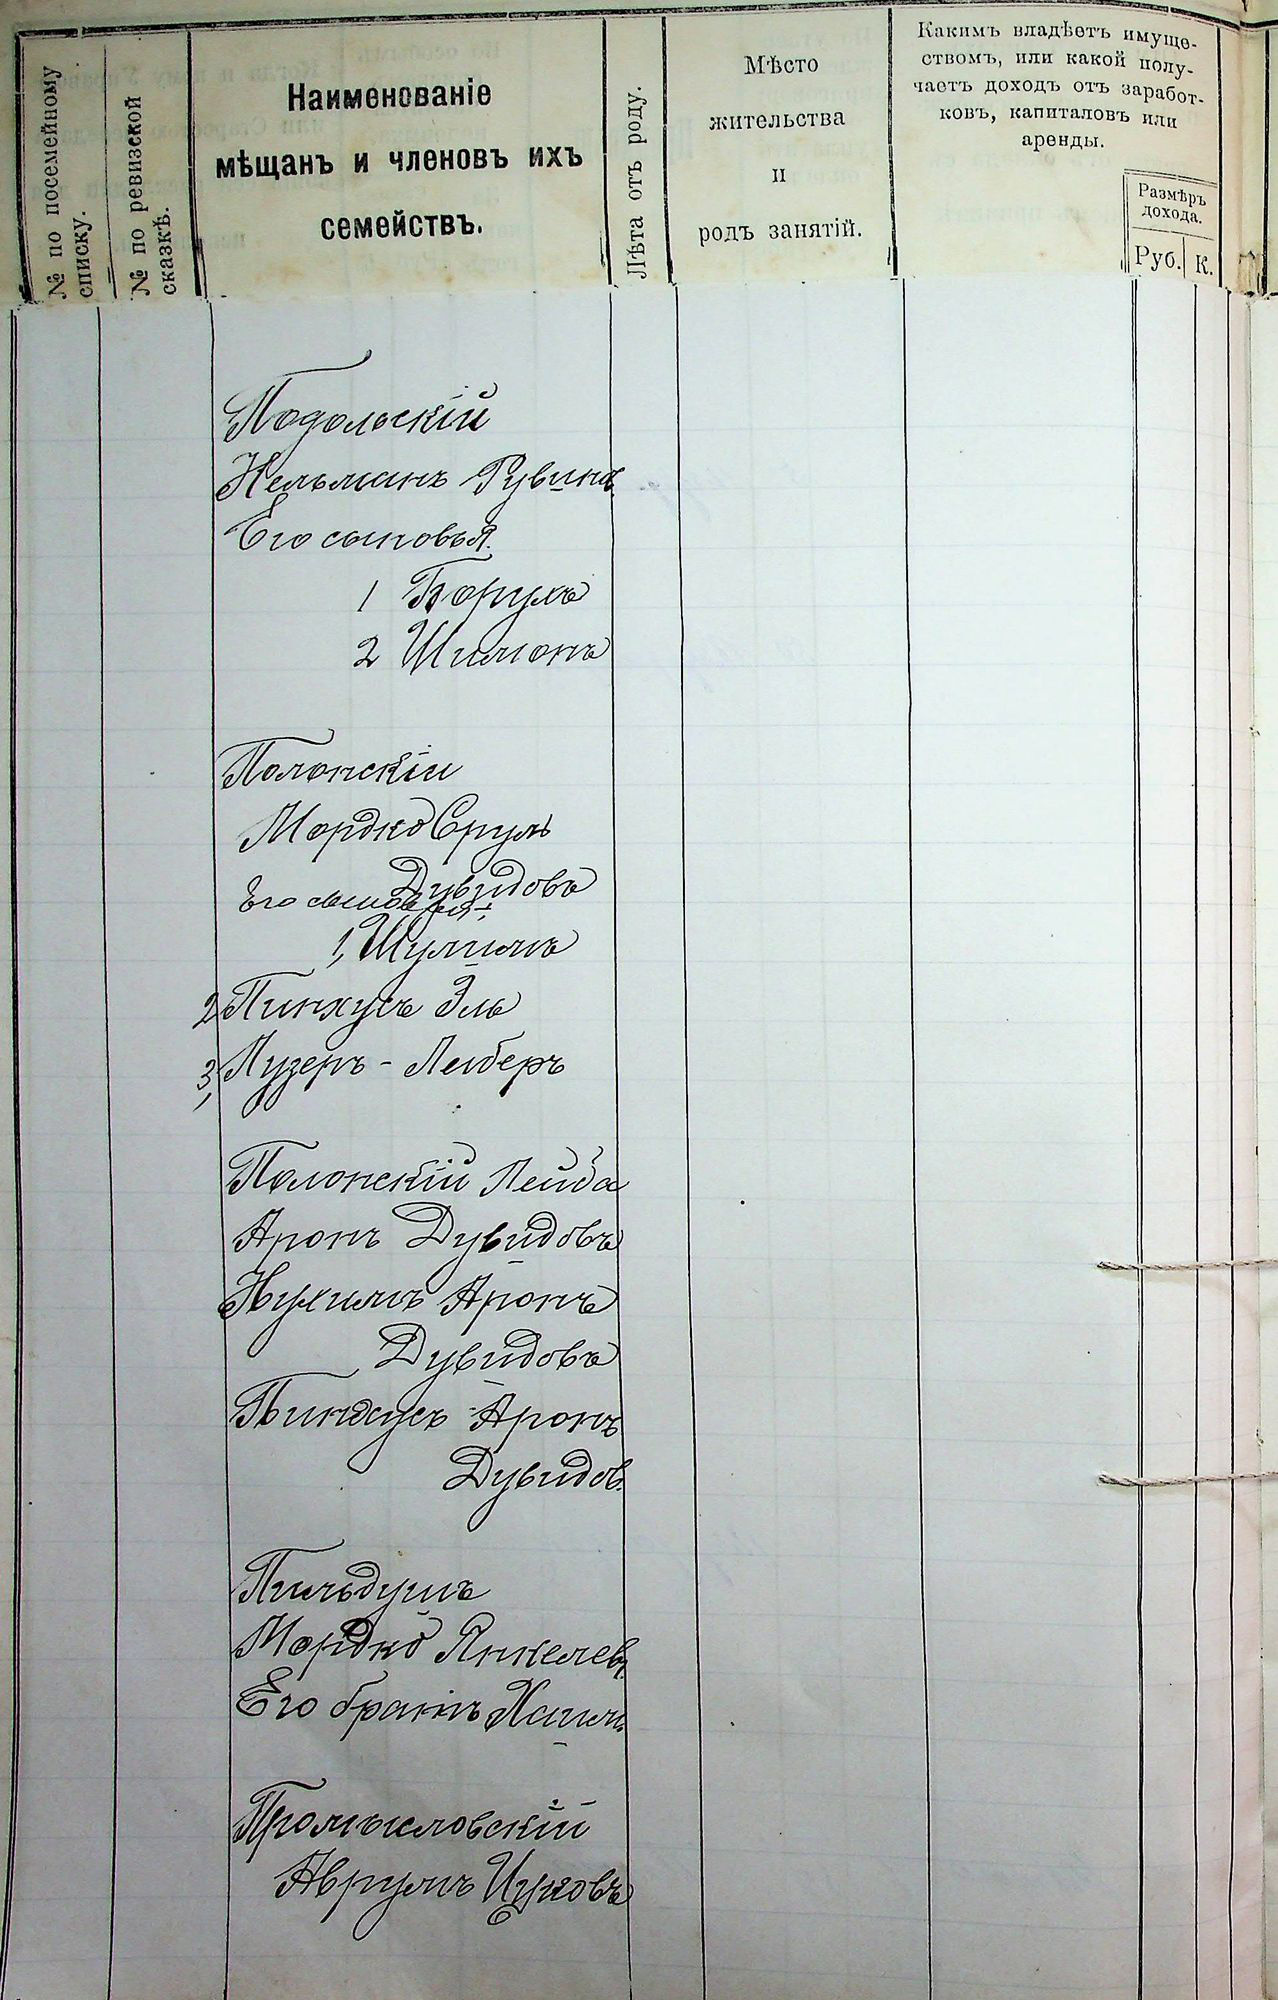 № по посемейному
списку.
№ по ревизской
сказкѣ.
Наименованіе
мѣщанъ и членовъ ихъ
семействъ.
Лѣта отъ роду.
Мѣсто
жительства
и
родъ занятій.
Какимъ владѣетъ имуще-
ствомъ, или какой полу-
чаетъ доходъ отъ заработ-
ковъ, капиталовъ или
аренды.
Размѣръ
дохода.
Руб. К.
Подольскій
Кельманъ Рувинъ
Его сыновья.
1 Борухъ
2 Шимонъ
Полонскій
Мордко Сруль
Дувидовъ
Его сыновья:
1, Шулимъ
2 Пинхусъ Эль
3, Лузеръ - Лейберъ
Полонскій Лейба
Аронъ Дувидовъ
Нухимъ Аронъ
Дувидовъ
Пинхусъ - Аронъ
Дувидов.
Пильдушъ
Мордко Янкелев.
Его братъ Хаимъ
Промысловскій
Аврумъ Ицковъ